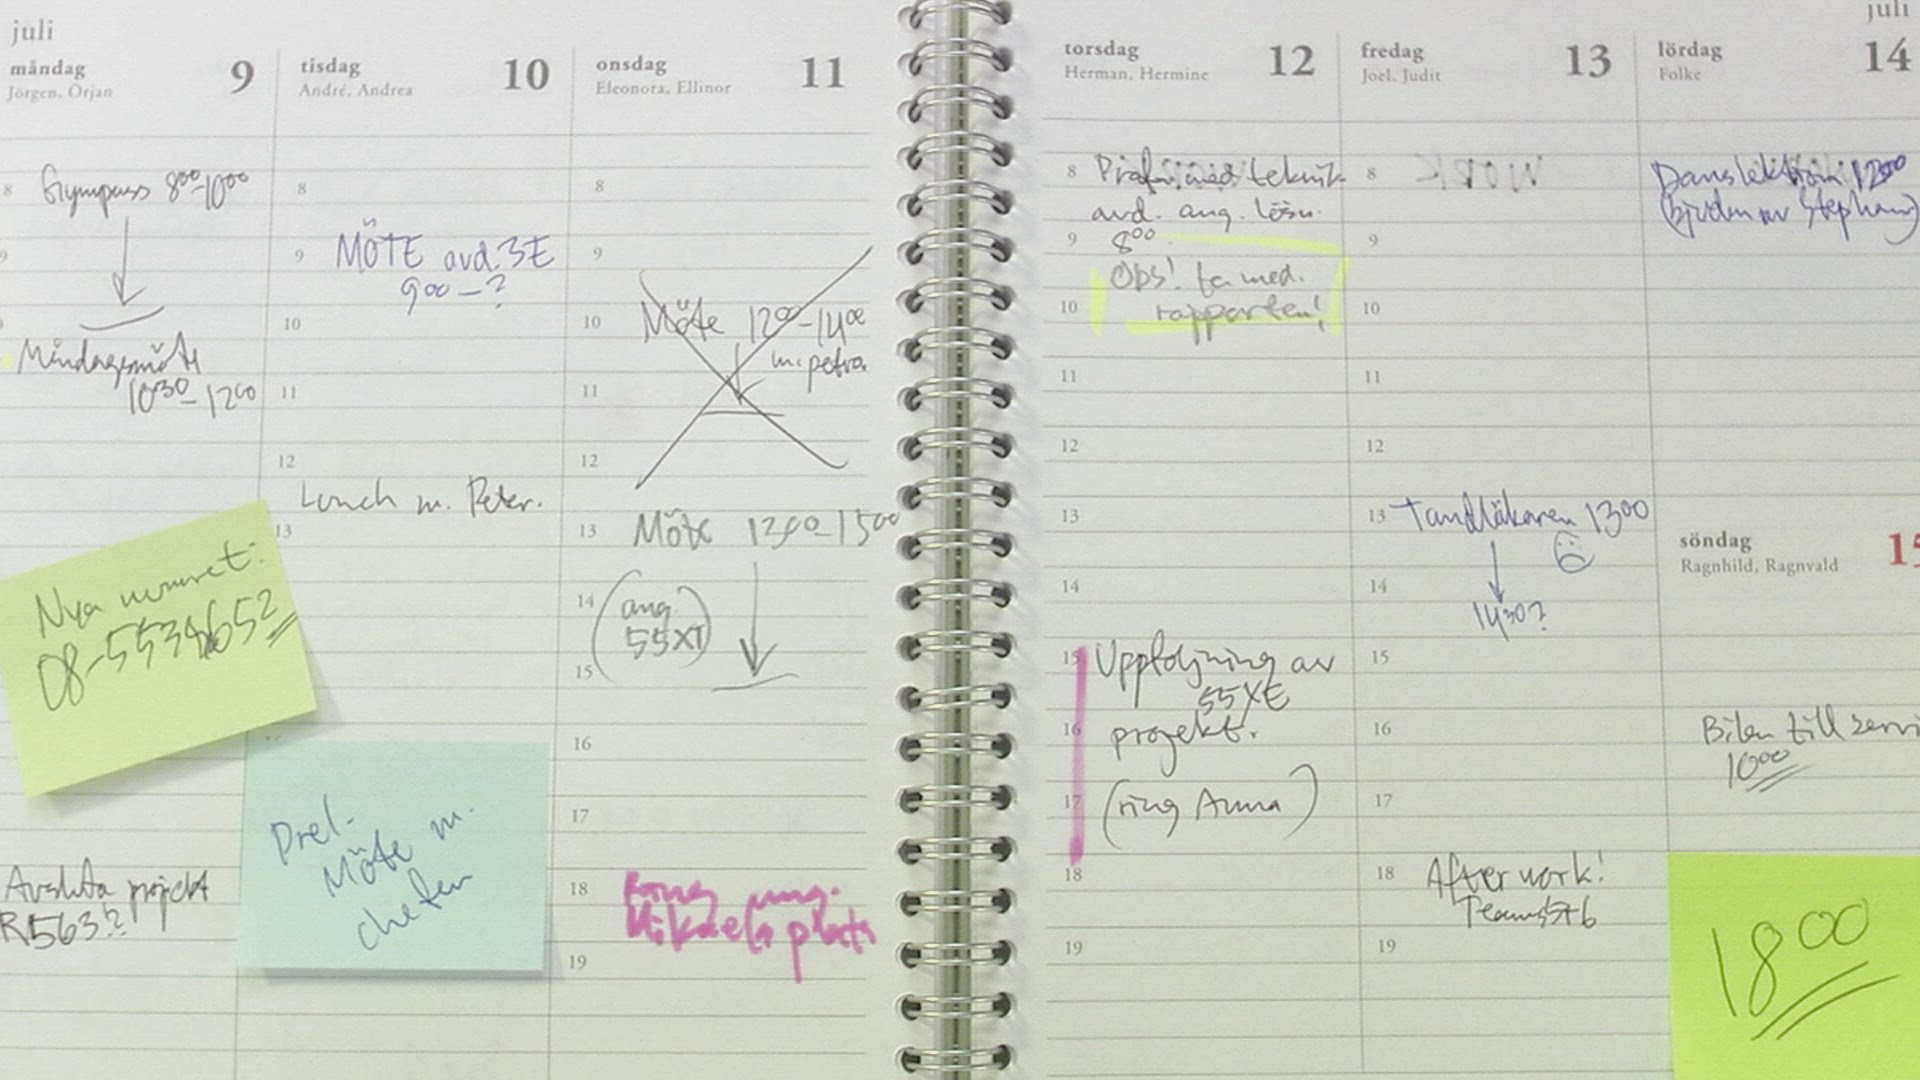 juli
måndag 9
Jörgen, Örjan
8 Gympass 8⁰⁰-10⁰⁰
9
Måndagsmöte
10³⁰-12⁰⁰
Nya numret:
Avsluta projekt
R563??
tisdag 10
André, Andrea
8
9 MÖTE avd. 3E
9⁰⁰-?
10
11
12
Lunch m. Peter.
13
Prel.
Möte m.
chefen
onsdag 11
Eleonora, Ellinor
8
9
10 Möte 12⁰⁰-14⁰⁰
m. petra
11
12
13 Möte 13⁰⁰-15⁰⁰
14 (ang.
55XT)
15
16
17
18 Ring ang.
Mikaela
19
torsdag 12
Herman, Hermine
8 med teknik
avd. ang.
9 8⁰⁰.
OBS! ta med.
10 rapporten!
11
12
13
14
15 Uppföljning av
55XE
16 projekt.
17 (ring Anna)
18
19
fredag 13
Joel, Judit
8
9
10
11
12
13 Tandläkaren 13⁰⁰
14
14³⁰?
15
16
17
18 After work!
Team 5+6
19
juli
lördag 14
Folke
12⁰⁰
(bjuden av Stephan)
söndag 15
Ragnhild, Ragnvald
Bilen till servi
10⁰⁰
18⁰⁰